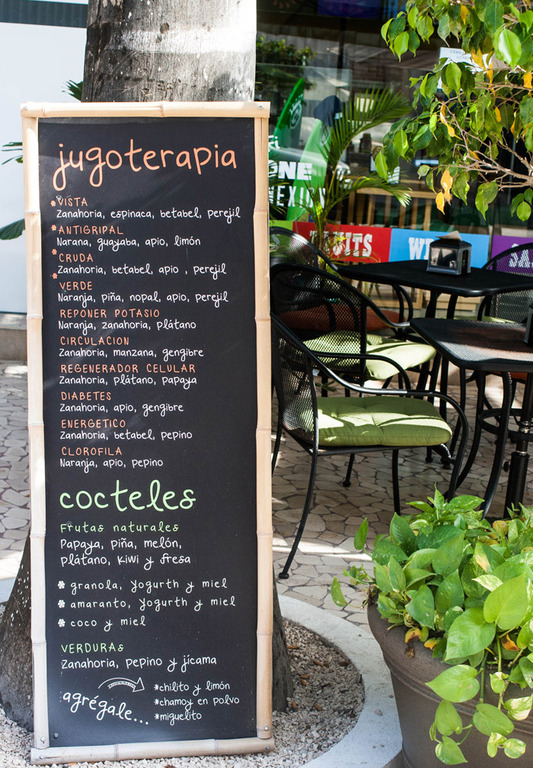 jugoterapia
*VISTA
Zanahoria, espinaca, betabel, perejil
*ANTIGRIPAL
Narana, guayaba, apio, limón
*CRUDA
Zanahoria, betabel, apio , perejil
*VERDE
Naranja, piña, nopal, apio, perejil
REPONER POTASIO
Naranja, zanahoria, plátano
CIRCULACION
Zanahoria, manzana, gengibre
REGENERADOR CELULAR
Zanahoria, plátano, papaya
DIABETES
Zanahoria, apio, gengibre
ENERGETICO
Zanahoria, betabel, pepino
CLOROFILA
Naranja, apio, pepino
cocteles
Frutas naturales
Papaya, piña, melón,
plátano, kiwi y fresa
* granola, yogurth y miel
* amaranto, yogurth y miel
* coco y miel
VERDURAS
Zanahoria, pepino y jícama
agrégale...
*chilito y limón
*chamoy en polvo
*miguelito